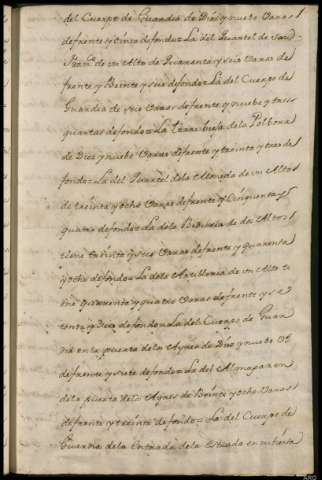 del Cuerpo de Guardia de Diez y nueve Varas
de frente y Cinco de fondo = La del Quartel de San
de un Alto de Quarenta y seis Varas de
frente y Beinte y seis de fondo = La del Cuerpo de
Guardia de seis Varas de frente y nuebe y tres
quartas de fondo = La de la Polbora
de Diez y nuebe Varas de frente y treinta y tres de
fondo = La del Quartel dela Moneda de un Alto
de treinta y ocho Varas de frente y Cinquenta y
quatro de fondo = La dela de dos Altos
tiene treinta y seis Varas de frente y quarenta
y ocho de fondo = La dela Artilleria de un Alto ti
ene quarenta y quatro Varas de frente y se
tenta y Diez de fondo = La del Cuerpo de Guar
dia en la puerta dela Agnes de Diez y nuebe Vs
de frente y siete de fondo = La del Almagazen
dela puerta dela Agnes de Beinte y ocho Varas
de frente y treinta de fondo = La del Cuerpo de
Guardia dela Entrada dela Estacada en